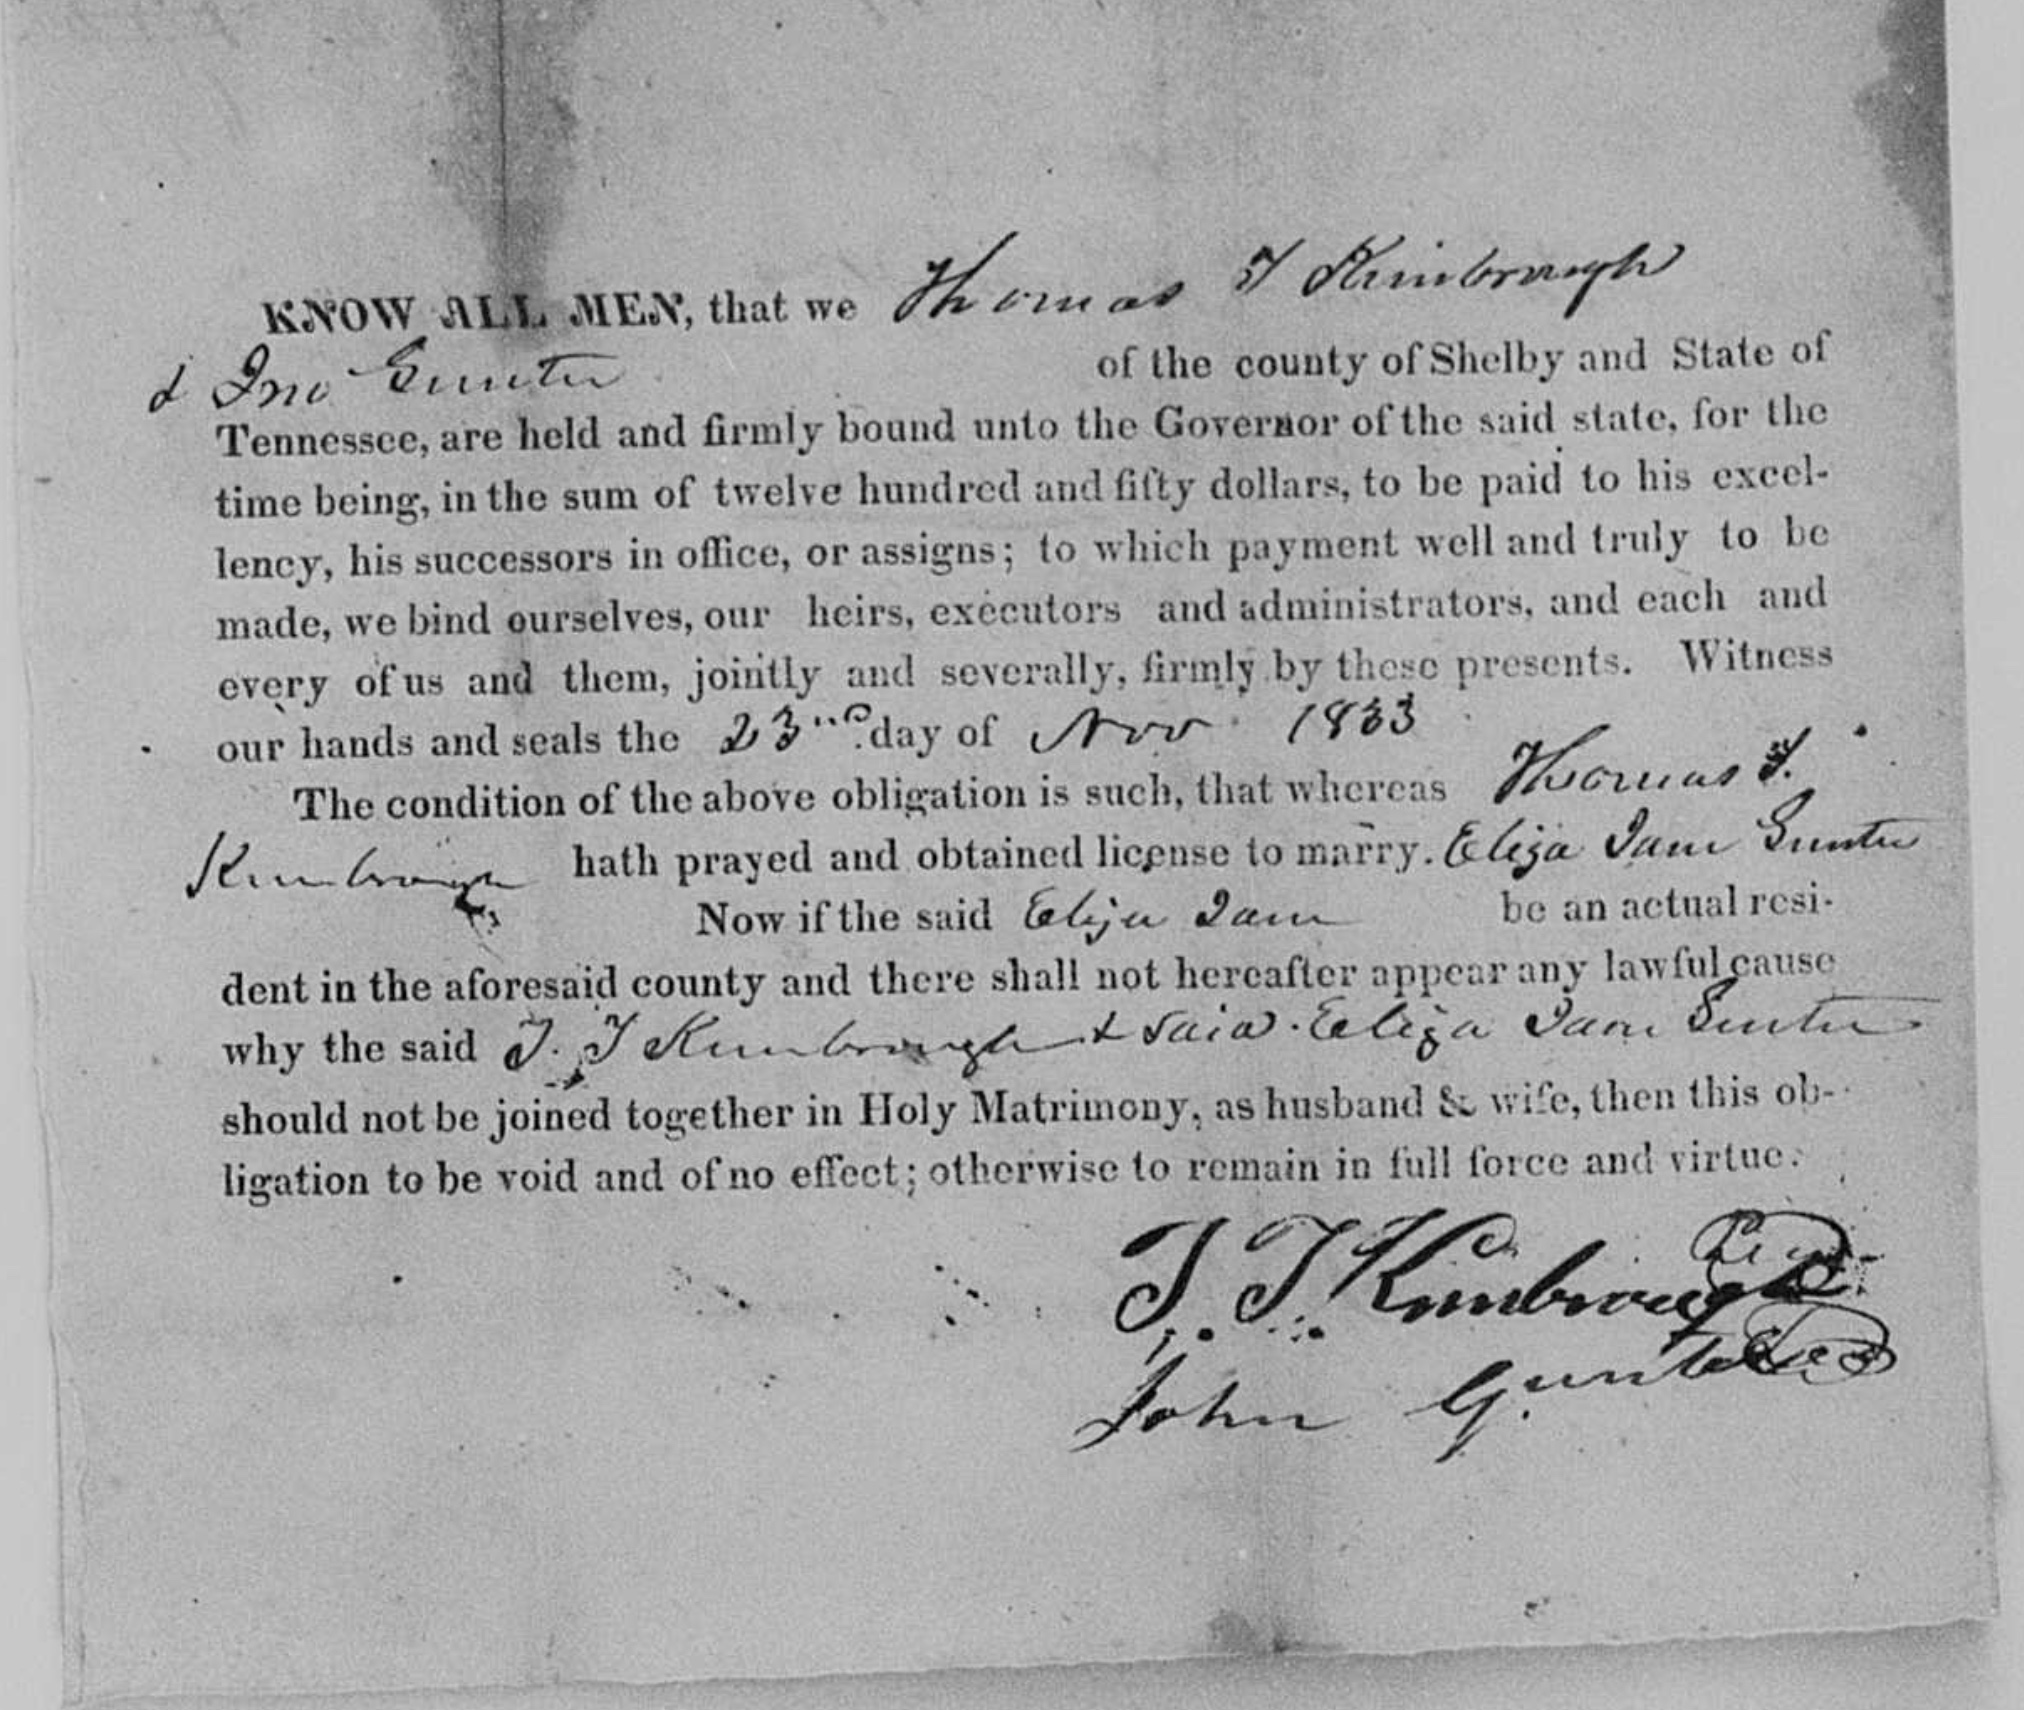 KNOW ALL MEN, that we Thomas T Kimbrough
& Jno Gunter of the county of Shelby and State of
Tennessee, are held and firmly bound unto the Governor of the said state, for the
time being, in the sum of twelve hundred and fifty dollars, to be paid to his excel-
lency, his successors in office, or assigns; to which payment well and truly to be
made, we bind ourselves, our heirs, executors and administrators, and each and
every of us and them, jointly and severally, firmly by these presents. Witness
our hands and seals the 23rd day of Nov 1833
The condition of the above obligation is such, that whereas Thomas T.
Kimbrough hath prayed and obtained license to marry. Eliza Jane Gunter
Now if the said Eliza Jane be an actual resi-
dent in the aforesaid county and there shall not hereafter appear any lawful cause
why the said T. T Kimbrough & said Eliza Jane Gunter
should not be joined together in Holy Matrimony, as husband & wife, then this ob-
ligation to be void and of no effect; otherwise to remain in full force and virtue.
T. T. Kimbrough
John Gunter